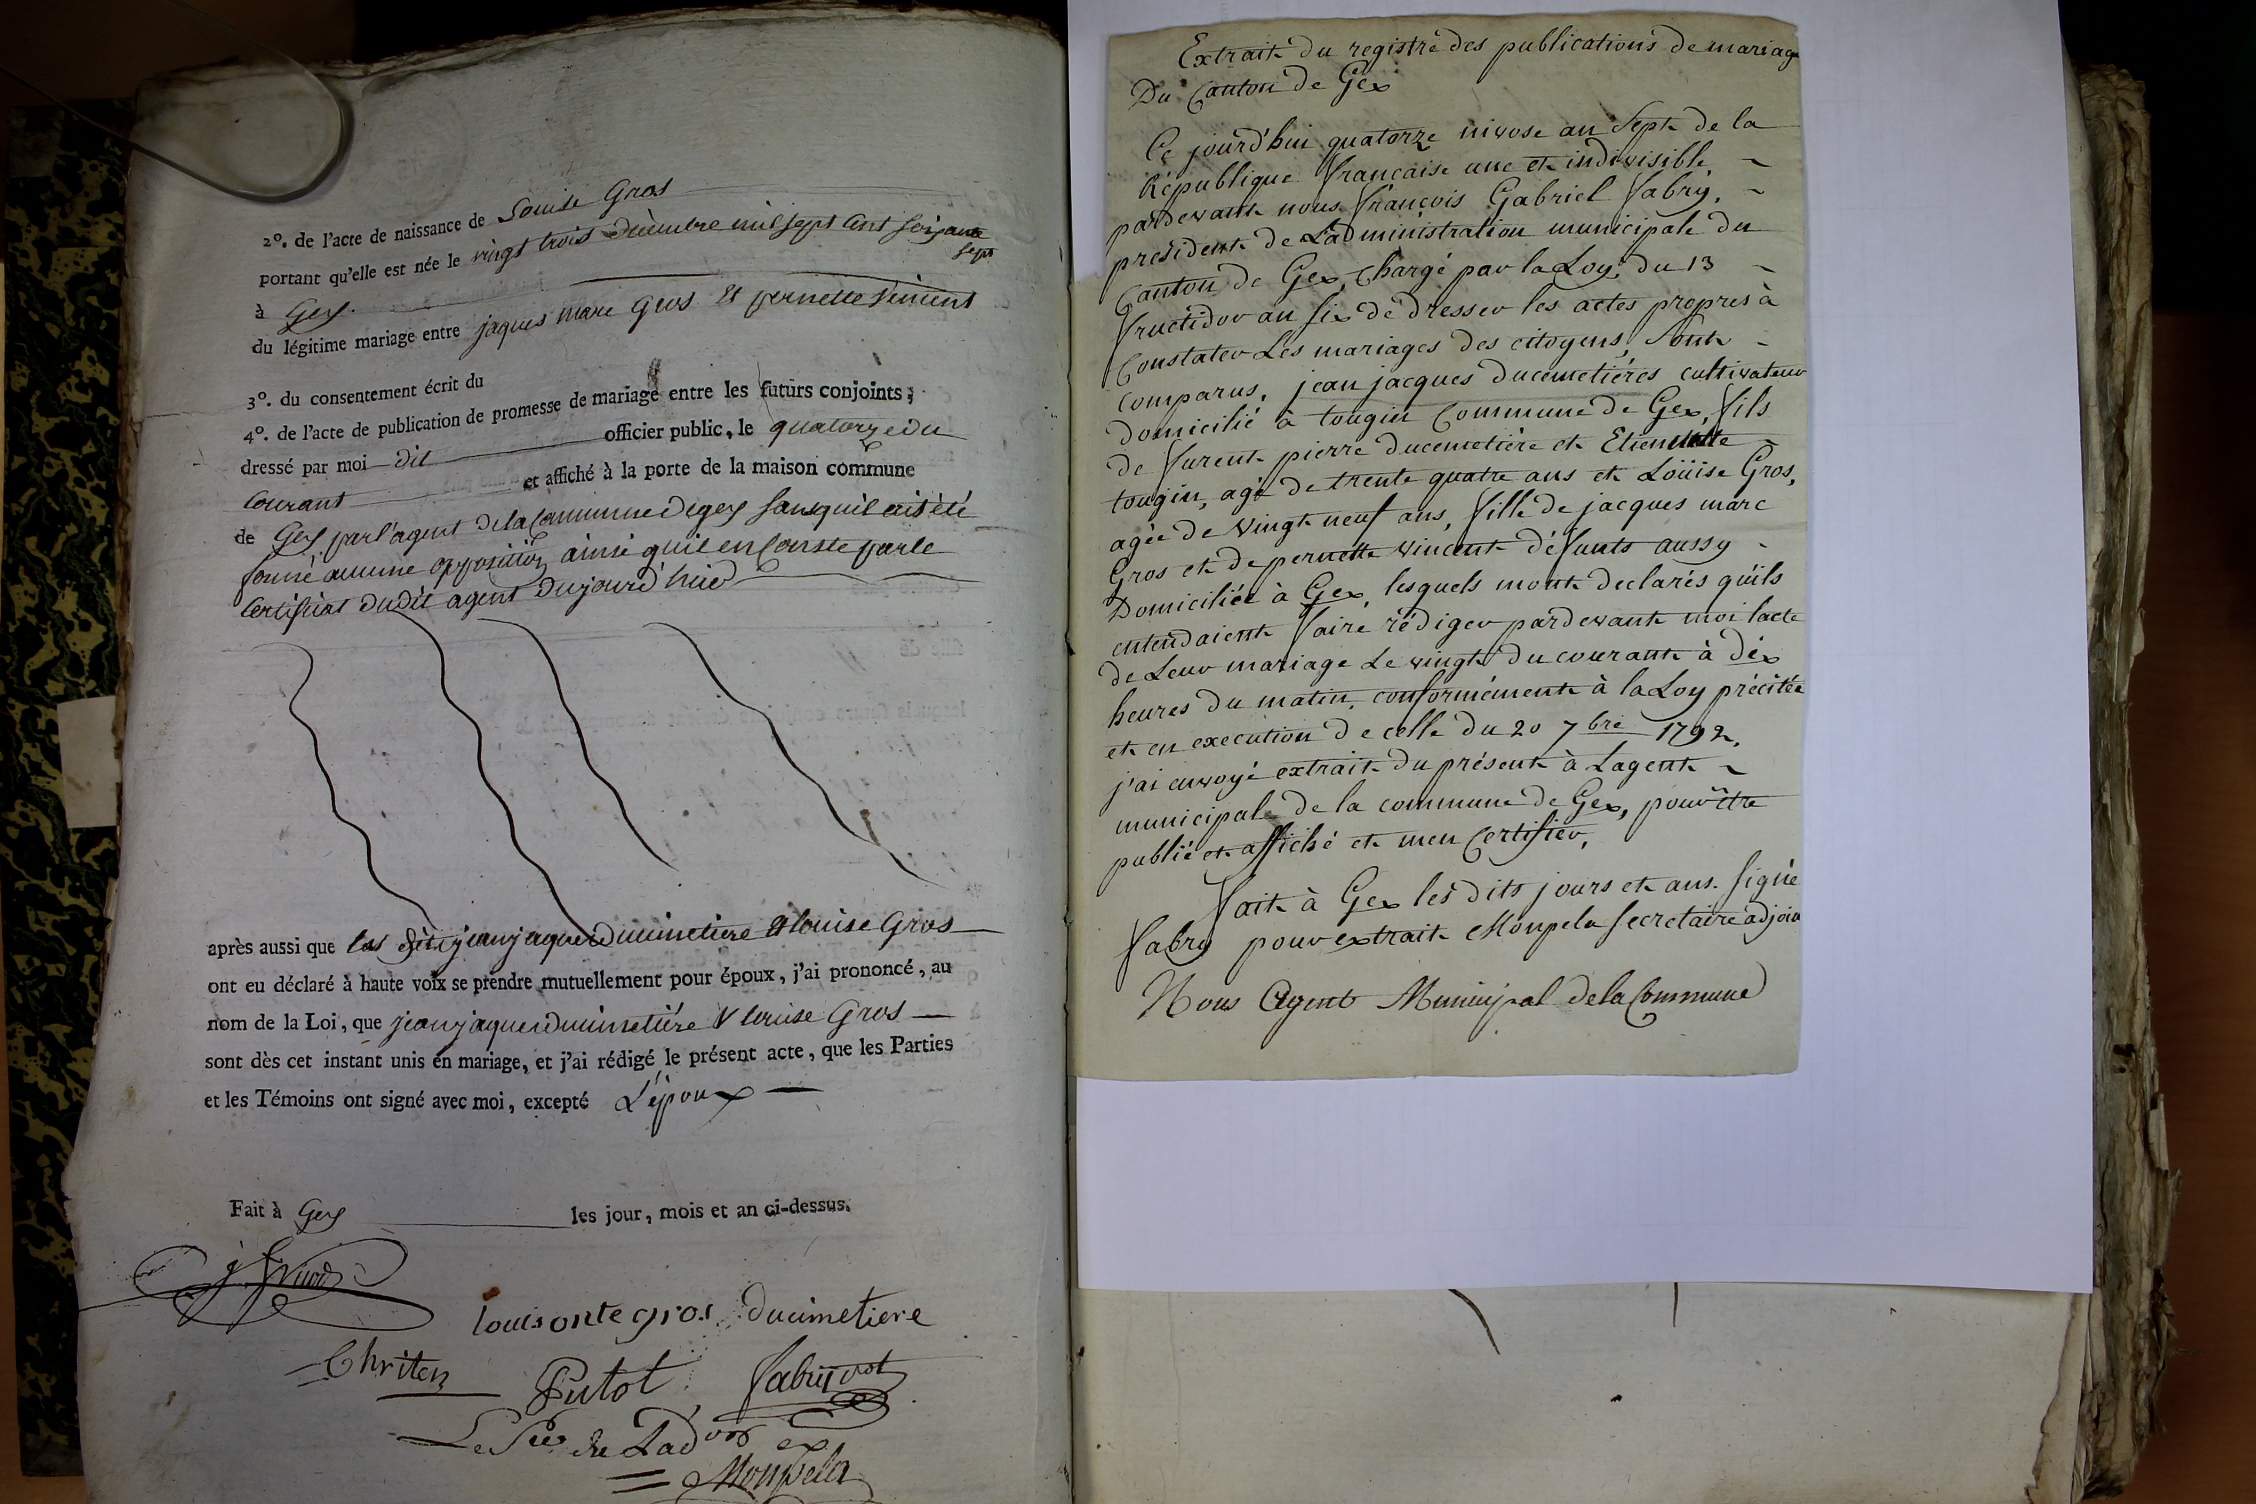 2º. de l'acte de naissance de Louise Gros
portant qu'elle est née le vingt trois décembre mil sept cent soixante
sept
à Gex.
du légitime mariage entre jaques marc gros et pernette vincent
3º. du consentement écrit du
4º. de l'acte de publication de promesse de mariage entre les futurs conjoints ;
dressé par moi dit officier public, le quatorze du
courant et affiché à la porte de la maison commune
de Gex par l'agent de la Commune de gex sans qu'il ait été
formé aucune opposition ainsi qu'il en Conste par le
Certificat du dit agent du jourd'huÿ
après aussi que les dits jean jaques ducimetiere et louise Gros
ont eu déclaré à haute voix se prendre mutuellement pour époux, j'ai prononcé, au
nom de la Loi, que jean jaques ducimetiére & louise Gros
sont dès cet instant unis en mariage, et j'ai rédigé le présent acte, que les Parties
et les Témoins ont signé avec moi, excepté L'époux
Fait à Gex les jour, mois et an ci-dessus.
louisonte gros ducimetiere
Chriten Putot fabry
Monpela
Extrait du registre des publications de mariage
Du Canton de Gex
Ce jourd'hui quatorze nivose an Sept de la
République française une et indivisible,
pardevant nous françois Gabriel fabry,
president de L'administration municipale du
Canton de Gex, Chargé par la Loy du 13
fructidor an six de dresser les actes propres à
Constater Les mariages des citoyens, Sont
comparus, jean jacques ducemetiéres cultivateur
domicilié à tougin Commune de Gex, fils
de furent pierre ducemetière et Etiennette
tougin, agé de trente quatre ans et Loüise Gros,
agée de vingt neuf ans, fille de jacques marc
Gros et de pernette vincent défunts aussy
Domiciliée à Gex, lesquels mont declarés qu'ils
entendaient faire rédiger pardevant moi lacte
de Leur mariage Le vingt du courant à dix
heures du matin, conformément à la Loy précitée
et en execution de celle du 20 7bre 1792,
j'ai envoyé extrait du présent à Lagent
municipal de la commune de Gex, pour être
publié et affiché et men Certifier,
fait à Gex les dits jours et ans. signé
fabry pour extrait Monpela Secretaire adjoin
Nous Agent Municipal de la Commune